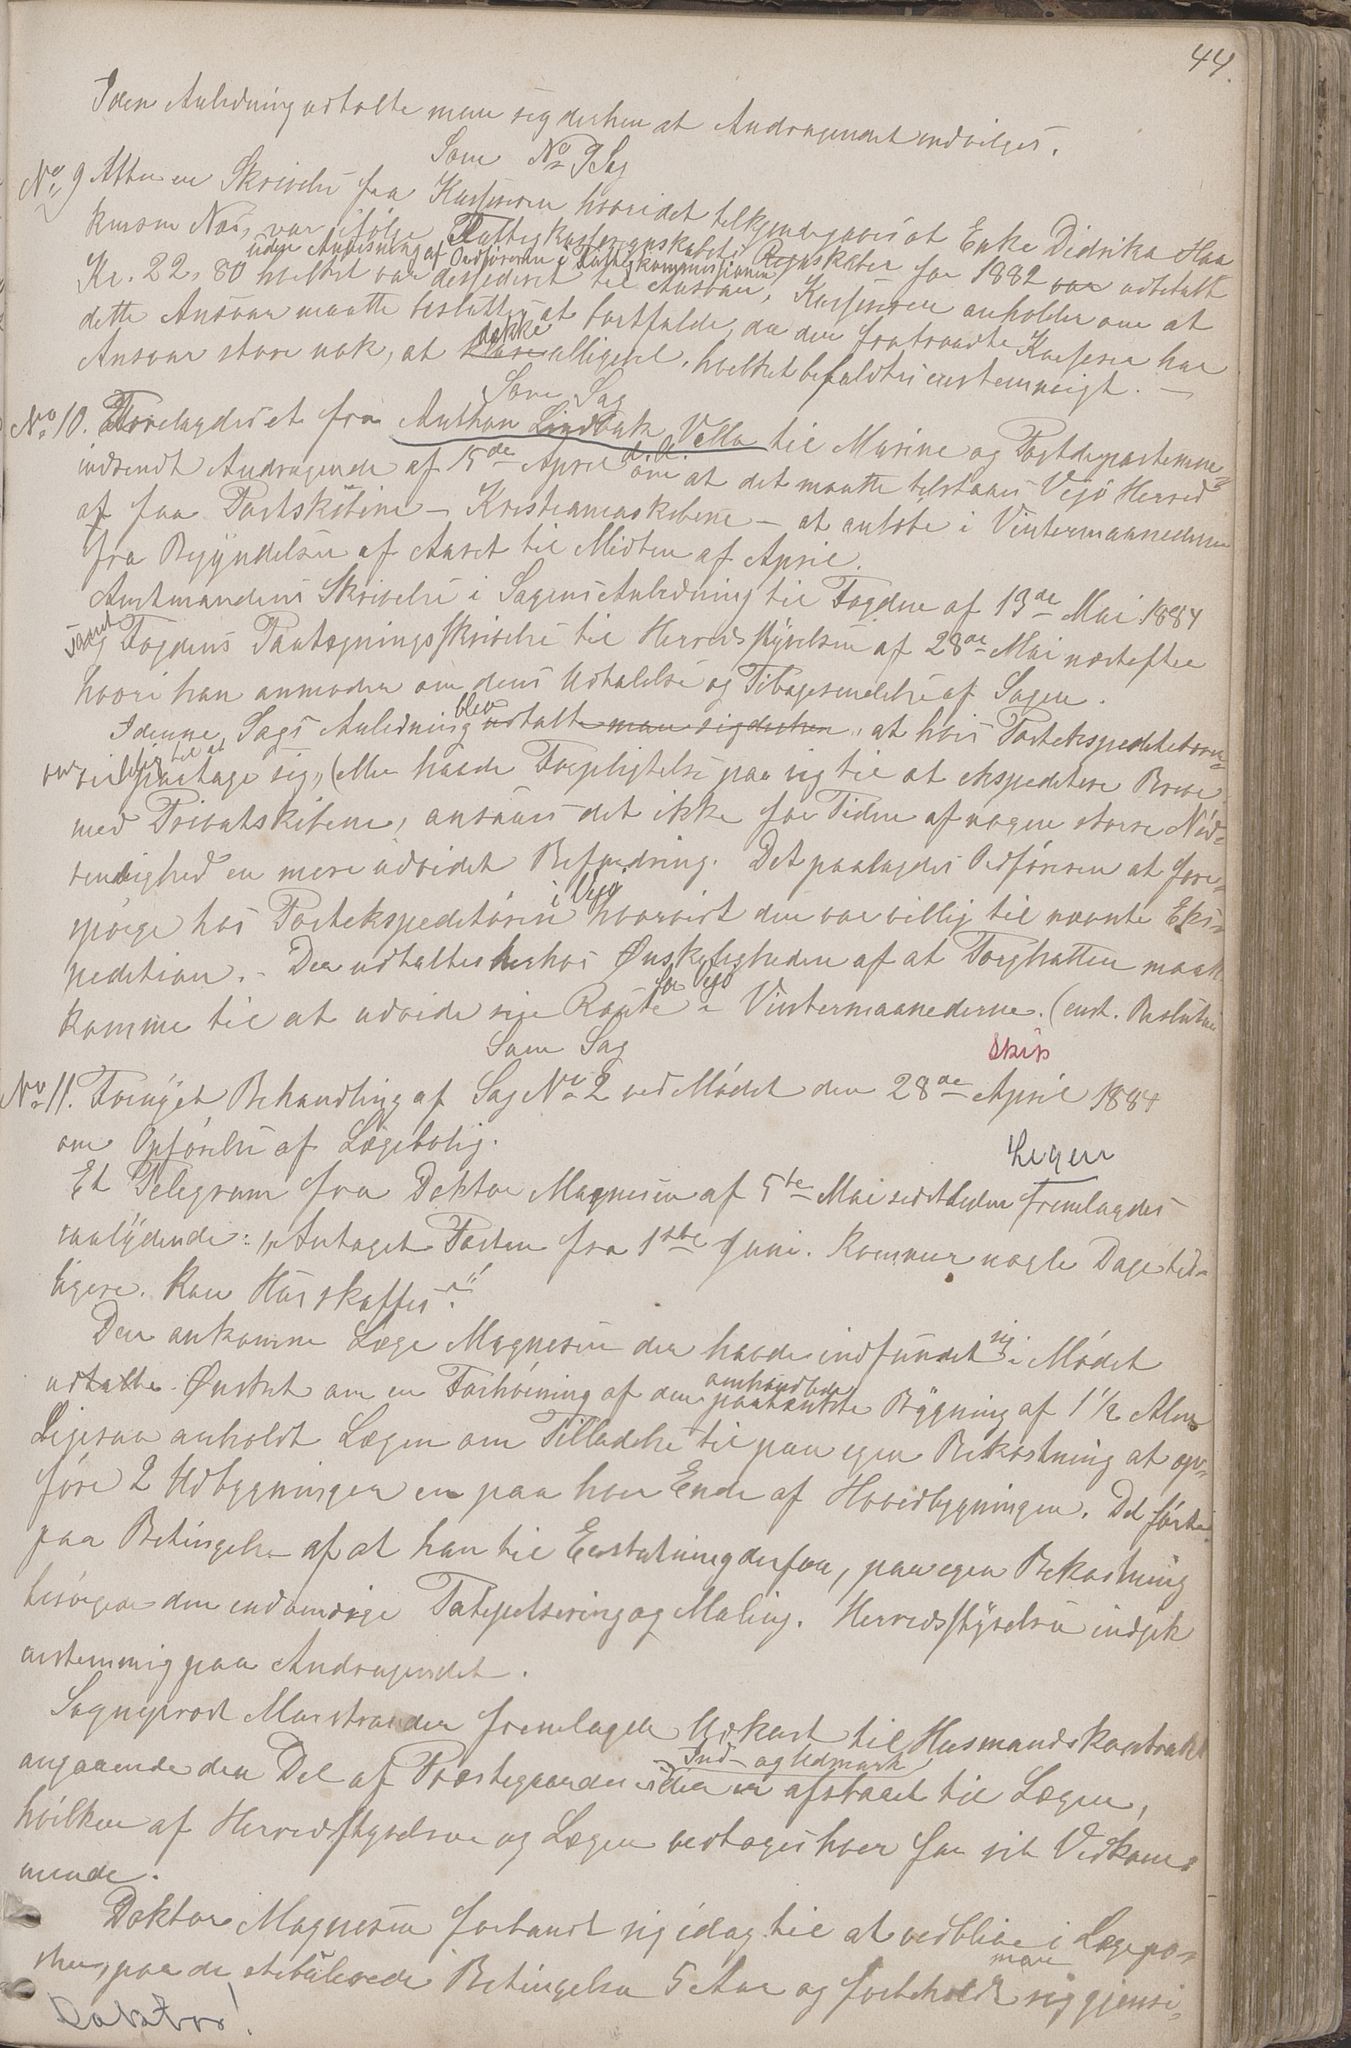 44.
I den Anledning udtalte man sig derhen at Andragendet indvilges.
Som No 9 Sag
No 9 Atter en Skrivelse fra Kasseren hvori det tilkjendegaves at Enke Didrika Han
kusom Næs, var ifølge Fattigkasseregnskabets Regnskaber for 1882 var udbetalt
uden Anvisning af Ordføreren i Fattigkommissionen
Kr. 22,80 hvilket var dessideret til Ansvar, Kasseren anholder om at
dette Ansvar maatte besluttes at bortfalde, da den fratraadte Kasserer har
dække
Ansvar store nok, at bære alligevel, hvilket bifaldtes enstemmigt. —
Som Sag
No 10. Forelagdes et fra Anthon Lindbak, Vella til Marine og Postdepartemne-
indsendt Andragende af 15de April d.A. om at det maatte tilstaaes Vegø Herred
af faa Postskibene – Kristianiaskibene – at anløbe i Vintermaanederne
fra Begyndelsen af Aaret til Midten af April.
Amtmandens Skrivelse i Sagens Anledning til Fogden af 13de Mai 1884
samt
og Fogdens Paategningsskrivelse til Herredsstyrelsen af 28de Mai næstefter
hvori han anmoder om dens Udtalelse og Tibagesendelse af Sagen.
blev
I denne Sags Anledning udtalte man sig derhen, at hvis Postekspeditøren
var villig til at paatage sig, (eller havde Forpligtelse paa sig til at ekspeditere Breve
med Privatskibene, ansaaes det ikke for Tiden af nogen større Nød-
vendighed en mere udvidet Befordring. Det paalagdes Ordføreren at fore-
i Vegø
spørge hos Postekspeditøren hvorvidt den var villig til nævnte Eks-
pedition. – Der udtaltes herhos Ønskeligheden af at Torghatten maatte
for Vegø
komme til at udvide sin Route i Vintermaanederne. (enst. Beslutning
Som Sag
Skib
No 11. Fornyet Behandling af Sag No 2 ved Mødet den 28de April 1884
om Opførelse af Lægebolig.
Legen
Et Telegram fra Doktor Magnesen af 5te Mai sidstleden fremlagdes
saalydende: „Antaget Posten fra 1ste Juni. Kommer nogle Dage tid-
ligere. Kan Hus skaffes?“
Den ankomne Læge Magnesen der havde indfundet sig i Mødet
omhandlede
udtalte Ønsket om en Forhøining af den paatænkte Bygning af 1 1/2 Alen
Ligesaa anholdt Lægen om Tilladelse til paa egen Bekostning at op-
føre 2 Udbygninger en paa hver Ende af Hovedbygningen. Det første
paa Betingelse af at han til Erstatning derfor, paa egen Bekostning
besørger den indvendige Tapetsering og Maling. Herredsstyrelsen indgik
enstemmig paa Andragendet.
Sogneprest Marstrander fremlagde Udkast til Husmandskontrakt
Ind- og Udmark
angaaende den Del af Præstegaardens der er afstaaet til Lægen,
hvilken af Herredsstyrelsen og Lægen vedtoges hver for sit Vedkom-
mende.
Doktor Magnesen forbandt sig idag til at vedblive i Lægepo-
man
sten, paa de stibulerede Betingelser 5 Aar og forbeholdt sig gjensi-
Doktor!